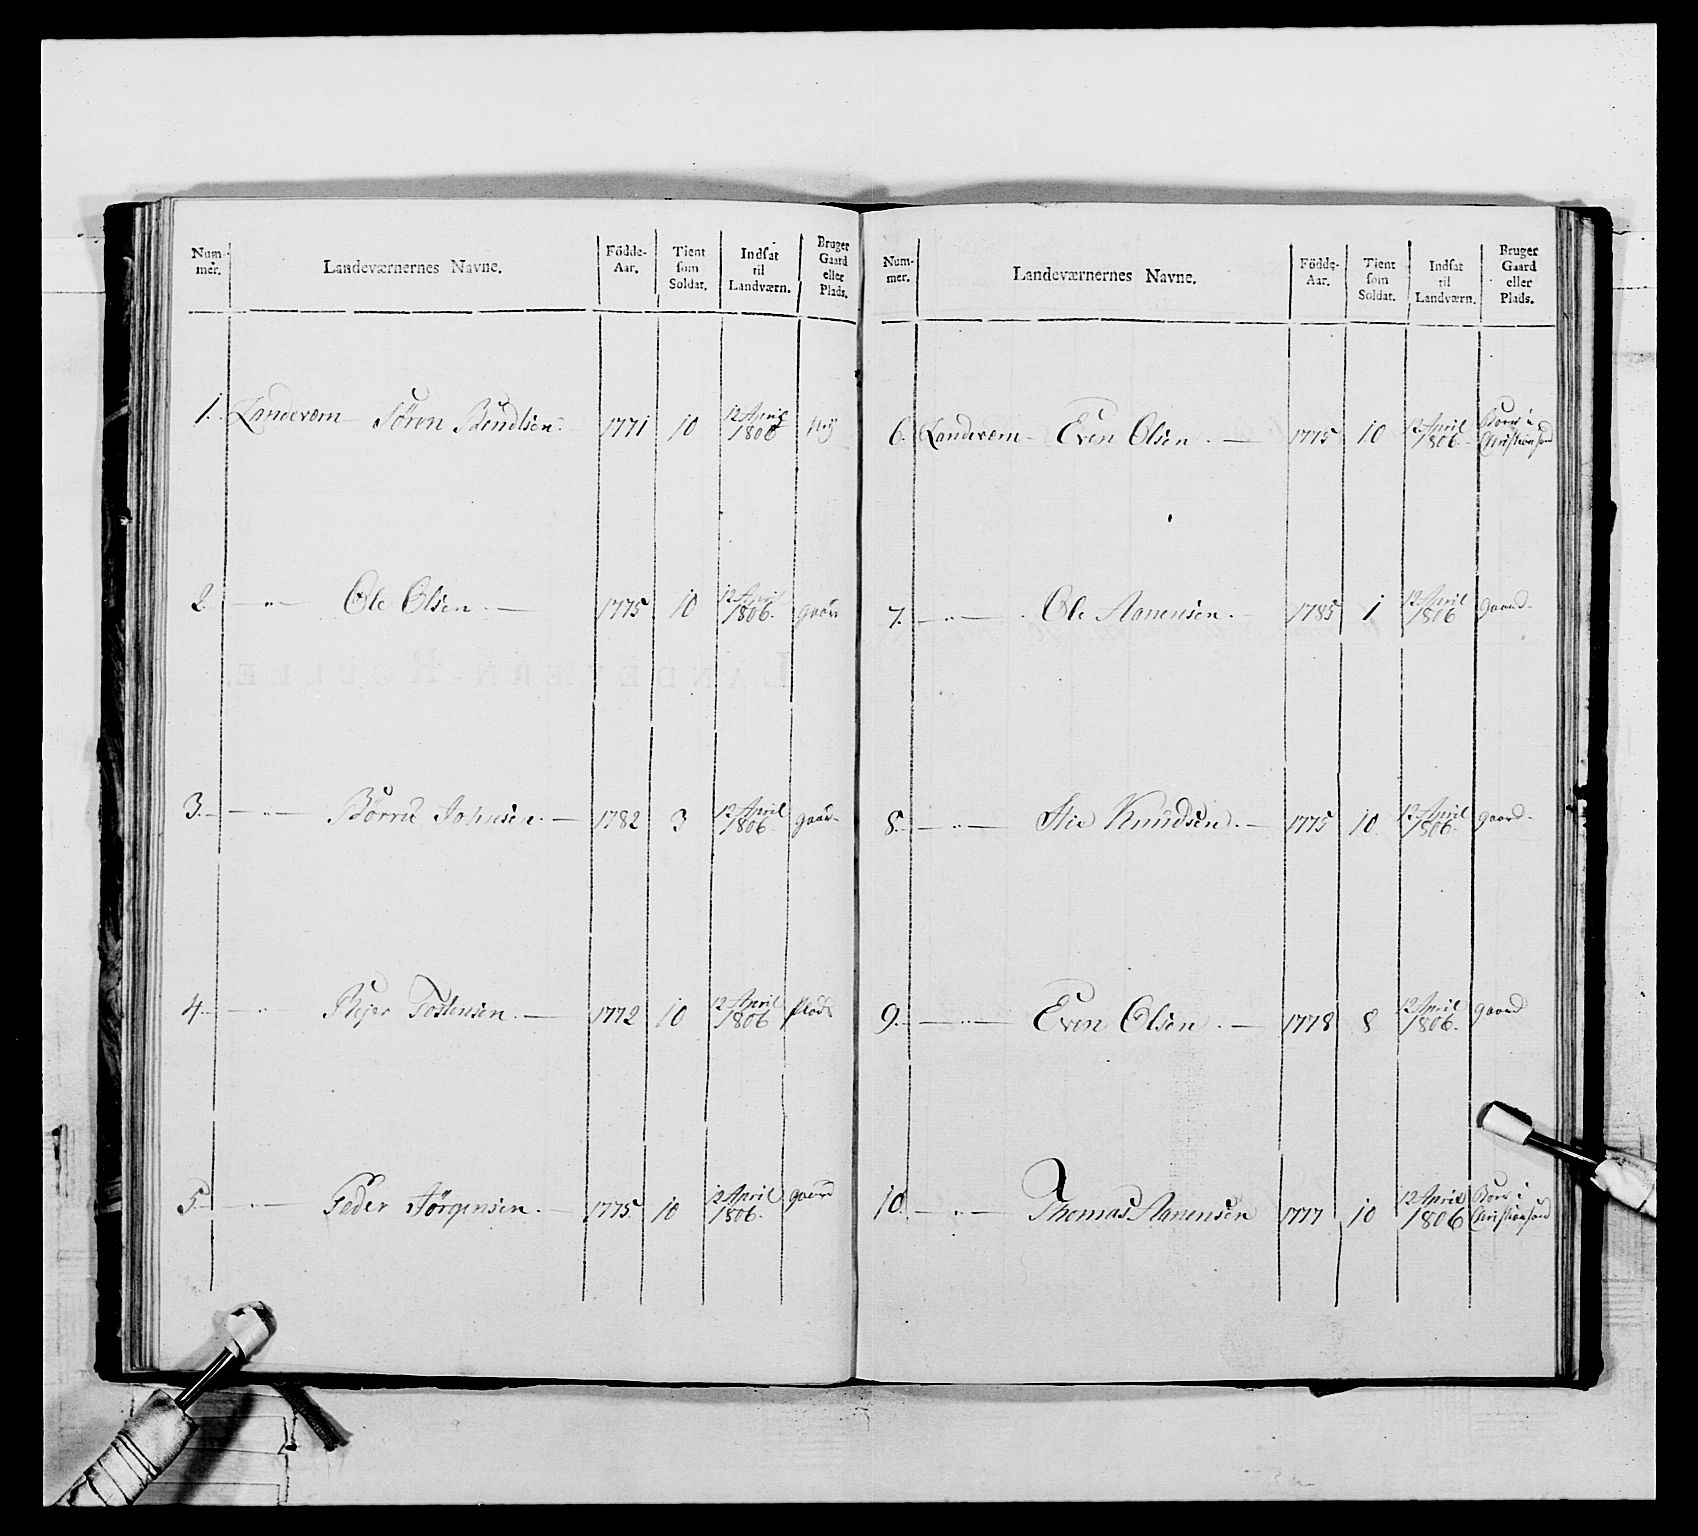 Num-
mer.
Landeværnernes Navne.
Födde-
Aar.
Tient
som
Soldat.
Indsat
til
Landværn.
Bruger
Gaard
eller
Plads.
1. Landeværn Sören Bendtsen. 1771 10 12 April
1806
2. — " — Ole Olsen. — 1775 10 12 April
1806. gaard
3. — " — Börre Johnsen. — 1782 3 12 April
1806. gaard
4. — " — Tostensen. — 1772 10 12 April
1806 Plads
5. — " — Peder Jörgensen. — 1775 10 12 April
1806. gaard
Num-
mer.
Landeværnernes Navne.
Födde-
Aar.
Tient
som
Soldat.
Indsat
til
Landværn.
Bruger
Gaard
eller
Plads.
6. Landeværn Even Olsen. — 1775 10 12 April
1806. Boer i
Christiansand
7. — " — Ole Aanensen. — 1785 1 12 April
1806 gaard
8. — " — Knudsen. — 1775 10 12 April
1806. gaard
9. — " — Even Olsen. — 1778 8 12 April
1806. gaard
10. — " — Thomas Aanensen 1777 10 12 April
1806 Boer i
Christiansand
LANDEVÆRN-ROULLE.